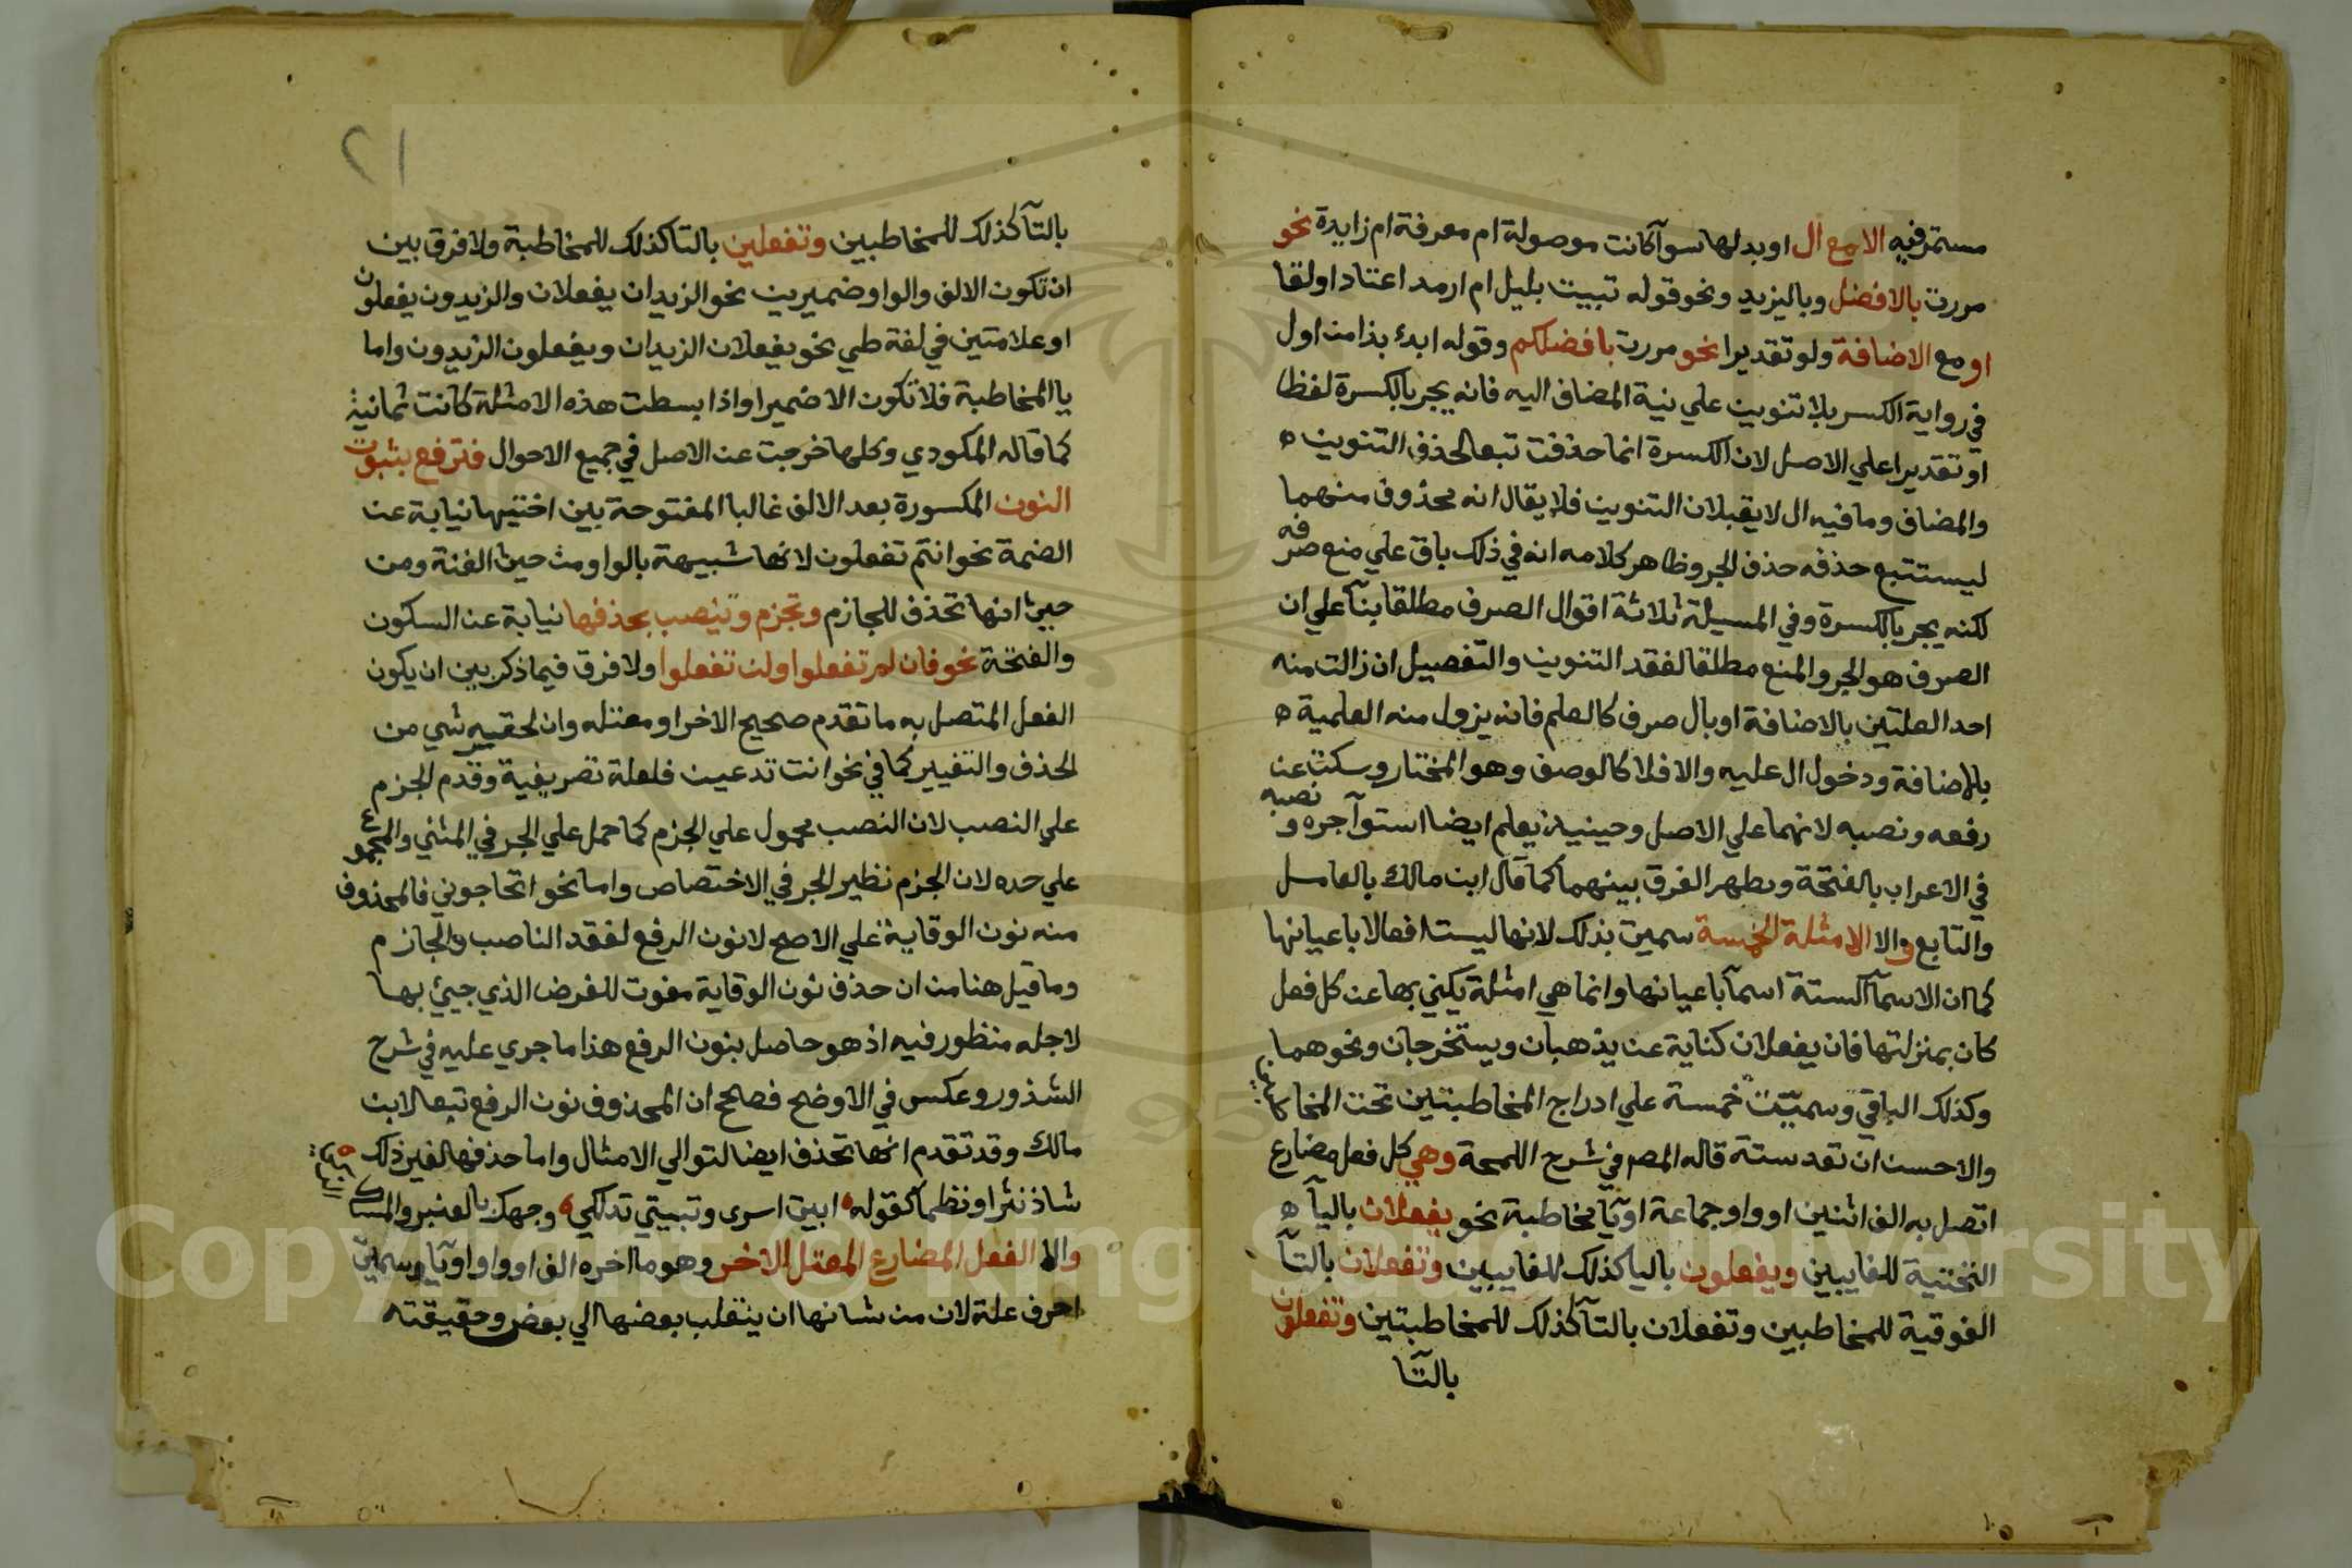 مستمر فيه الا مع ال او بدلها سوآ كانت موصولة ام معرفة ام زايدة نحو
مررت بالافضل وباليزيد ونحو قوله تبيت بليل ام ارمد اعتاد اولقا
او مع الاضافة ولو تقديرا نحو مررت بافضلكم وقوله ابدء بذا من اول
في رواية الكسر بلا تنوين علي نية المضاف اليه فانه يجر بالكسرة لفظا
او تقديرا علي الاصل لان الكسرة انما حذفت تبعا لحذف التنوين ه
والمضاف وما فيه ال لا يقبلان التنوين فلا يقال انه محذوف منهما
ليستتبع حذفه حذف الجر وظاهر كلامه انه في ذلك باق علي منع صرفه
لكنه يجر بالكسرة وفي المسيلة ثلاثة اقوال الصرف مطلقا بنآ علي ان
الصرف هو الجر والمنع مطلقا لفقد التنوين والتفصيل ان زالت منه
احد العلتين بالاضافة او بال صرف كالعلم فانه يزول منه العلمية ه
بالاضافة ودخول ال عليه والا فلا كالوصف وهو المختار وسكت عن
رفعه ونصبه لانهما علي الاصل وحينيذ يعلم ايضا استوآ جره ونصبه
في الاعراب بالفتحة ويظهر الفرق بينهما كما قال ابن مالك بالعامل
والتابع والا الامثلة الخمسة سميت بذلك لانها ليست افعالا باعيانها
كما ان الاسمآ الستة اسمآ باعيانها وانما هي امثلة يكني بها عن كل فعل
كان بمنزلتها فان يفعلان كناية عن يذهبان ويستخرجان ونحوهما
وكذلك الباقي وسميت خمسة علي ادراج المخاطبتين تحت المخاطبين
والاحسن ان تعد ستة قاله المص في شرح اللمحة وهي كل فعل مضارع
اتصل به الف اثنين او واو جماعة او يآ مخاطبة نحو يفعلان باليآ ه
التحتية للغايبين ويفعلون باليا كذلك للغايبين وتفعلان بالتآ
الفوقية للمخاطبين وتفعلان بالتآ كذلك للمخاطبتين وتفعلون
بالتآ
٢١
بالتآ كذلك للمخاطبين وتفعلين بالتا كذلك للمخاطبة ولا فرق بين
ان تكون الالف والواو ضميرين نحو الزيدان يفعلان والزيدون يفعلون
او علامتين في لغة طي نحو يفعلان الزيدان ويفعلون الزيدون واما
يا المخاطبة فلا تكون الا ضميرا واذا بسطت هذه الامثلة كانت ثمانية
كما قاله المكودي وكلها خرجت عن الاصل في جميع الاحوال فترفع بثبوت
النون المكسورة بعد الالف غالبا المفتوحة بين اختيها نيابة عن
الضمة نحو انتم تفعلون لانها شبيهة بالواو من حيث الغنة ومن
حيث انها تحذف للجازم وتجزم وتنصب بحذفها نيابة عن السكون
والفتحة نحو فان لم تفعلوا ولن تفعلوا ولا فرق فيما ذكر بين ان يكون
الفعل المتصل به ما تقدم صحيح الاخر او معتله وان لحقه شي من
الحذف والتغيير كما في نحو انت تدعين فلعلة تصريفية وقدم الجزم
علي النصب لان النصب محمول علي الجزم كما حمل علي الجر في المثني والمجموع
علي حده لان الجزم نظير الجر في الاختصاص واما نحو اتحاجوني فالمحذوف
منه نون الوقاية علي الاصح لا نون الرفع لفقد الناصب والجازم
وما قيل هنا من ان حذف نون الوقاية مفوت للغرض الذي جيئ بها
لاجله منظور فيه اذ هو حاصل بنون الرفع هذا ما جري عليه في شرح
الشذور وعكس في الاوضح فصحح ان المحذوف نون الرفع تبعا لابن
مالك وقد تقدم انها تحذف ايضا لتوالي الامثال واما حذفها لغير ذلك
شاذ نثرا ونظما كقوله ابيت اسرى وتبيتي تدلكي وجهك بالعنبر والمسك
والا الفعل المضارع المعتل الاخر وهو ما اخره الف او واو او يآ وسميت
احرف علة لان من شانها ان ينقلب بعضها الي بعض وحقيقته
Copyright © King Saud University